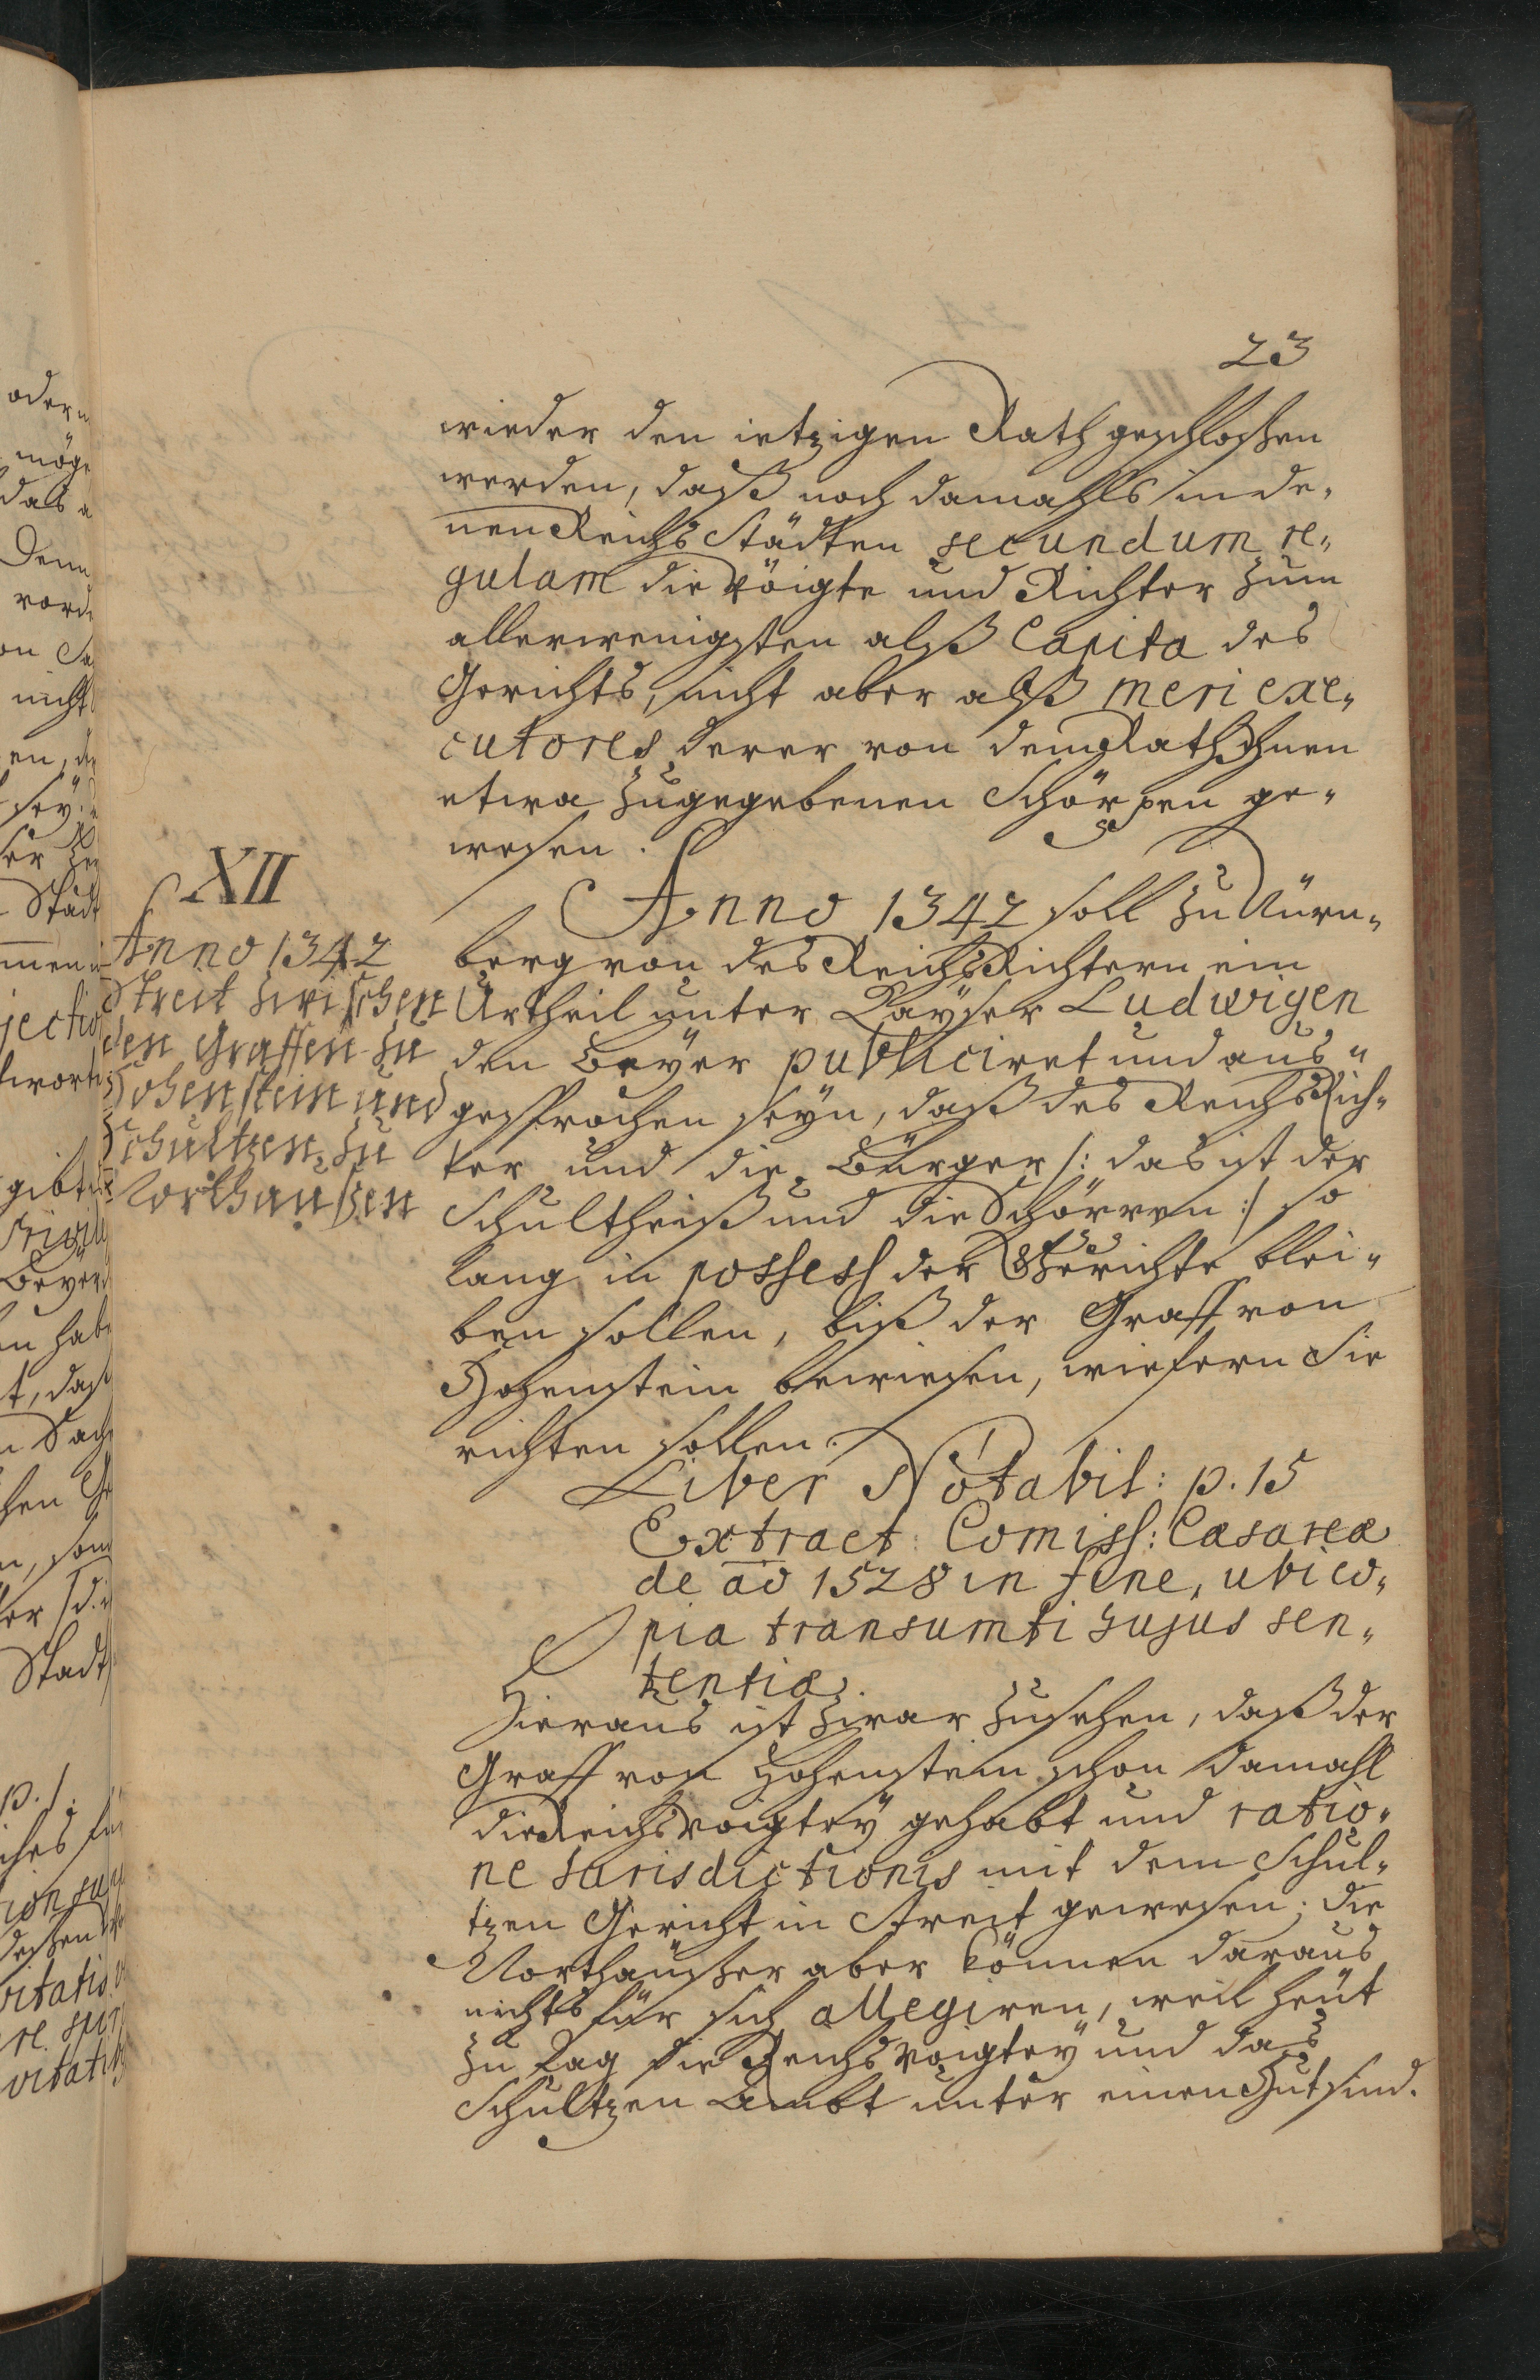 23
wieder den ietzigen Rath geschloßen
werden, daß noch damahls in de-
nen Reichs Städten secundum re-
gulam die Vöigte und Richter zum
allerwenigsten alß Capita des
Gerichts, nicht aber alß meri exe-
cutores derer von dem Rath Ihnen
etwa zugegebenen Schöppen ge-
wesen.
XII
Anno 1342
Streit zwischen
den Graffen zu
Hohenstein und
Schultzen zu
Northaußen
Anno 1342 soll zu Nürn-
berg von des Reichs Richtern ein
Urtheil unter Kayser Ludwigen
den Beyer publiciret und aus-
gesprochen seyn, daß des Reichs Rich-
ter und die Bürger /: das ist der
Schultheiß und die Schöppen :/ so
lang in possess der Gerichte blei-
ben sollen, biß der Graff von
Hohenstein bewiesen, wiefern Sie
richten sollen.
Liber Notabil: p. 15
Extract: Comiss: Cæsareæ
de ao 1528 in fine, ubi co-
pia transumti hujus sen-
tentiæ.
Hieraus ist zwar zusehen, daß der
Graff von Hohenstein schon damahl
die Reichs Voigtey gehabt und ratio-
ne Jurisdictionis mit dem Schul-
tzen Gericht in Streit gewesen; die
Northäußer aber können daraus
nichts für sich allegiren, weil heut
zu Tag die Reichs Voigtey und das
Schultzen Ambt unter einen Hut sind.